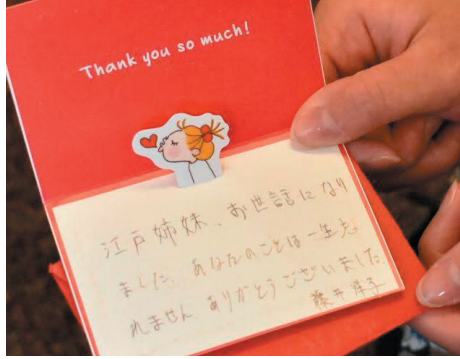 Thank you so much!
江戸姉妹、お世話になり
ました。あなたのことは一生忘
れません ありがとうございました。
藤井洋子